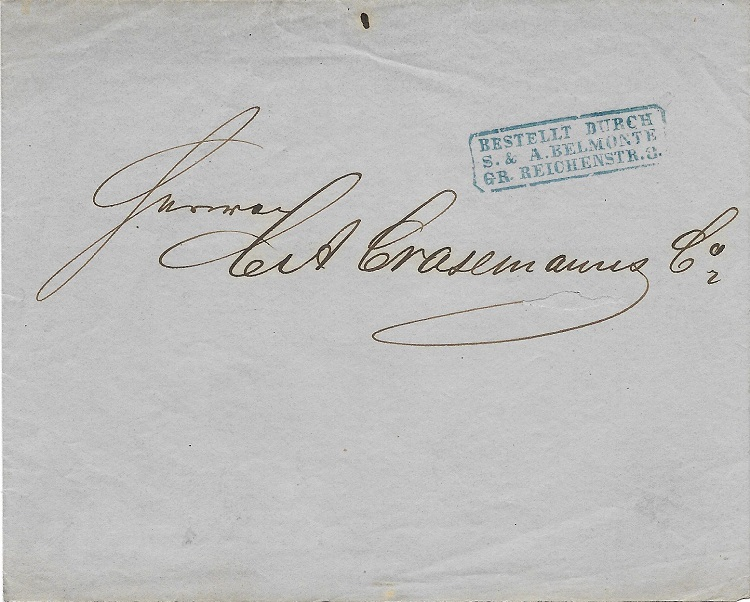 BESTELLT DURCH
S. & A. BELMONTE
GR. REICHENSTR. 3.
Herren
C & A Crasemanns Co